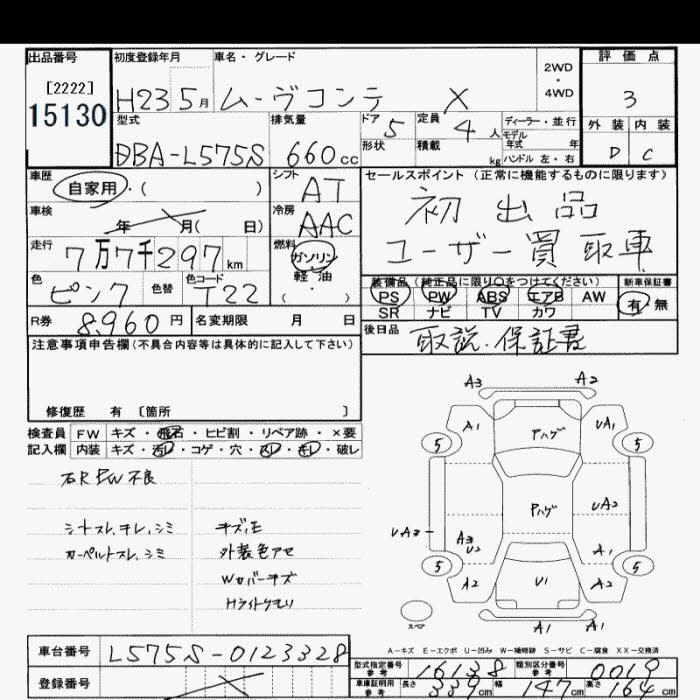 出品番号 初度登録年月 車名・グレード 2WD・4WD 評価点
[2222]
15130
H23 5月 ムーヴコンテ X 3
型式 排気量 ドア 5 定員 4人 ディーラー・並行 外装 内装
モデル年式 年
DBA-L575S 660cc 形状 積載 kg ハンドル 左・右 D C
車歴 シフト セールスポイント(正常に機能するものに限ります)
自家用・( ) AT 初出品
車検 年 月( 日) 冷房 AAC ユーザー買取車
走行 燃料
7万7千297km ガソリン
軽・油
( ・ )
色 ピンク 色替 色コード T22
装備品(純正品に限り○をつけてください) 新車保証書
PS PW ABS エアB AW 有・無
SR ナビ TV カワ
R券 8,960円 名変期限 月 日
後日品 取説・保証書
注意事項申告欄(不具合内容等は具体的に記入して下さい)
修復歴 有 [箇所 ]
検査員 FW キズ・飛石・ヒビ割・リペア跡・×要
記入欄 内装 キズ・汚レ・コゲ・穴・スレ・キレ・破レ
右R PW 不良
シートスレ、キレ、シミ
カーペルトスレ、シミ
キズ、凹
外装色アセ
Wカバーキズ
Hライトクモリ
A3 A2
A1 Pハゲ UA1
5 5
Pハゲ UA2
UA3
A3
U2 A1
5 5
A2 U1 A2
スペア A1 A1
A-キズ E-エクボ U-凹み W-補修跡 S-サビ C-腐食 XX-交換済
車台番号 L575S-0123328
登録番号
型式指定番号 参考 16138 類別区分番号 参考 0019
車庫証明用 参考 長さ 339cm 幅 147cm 高さ 164cm